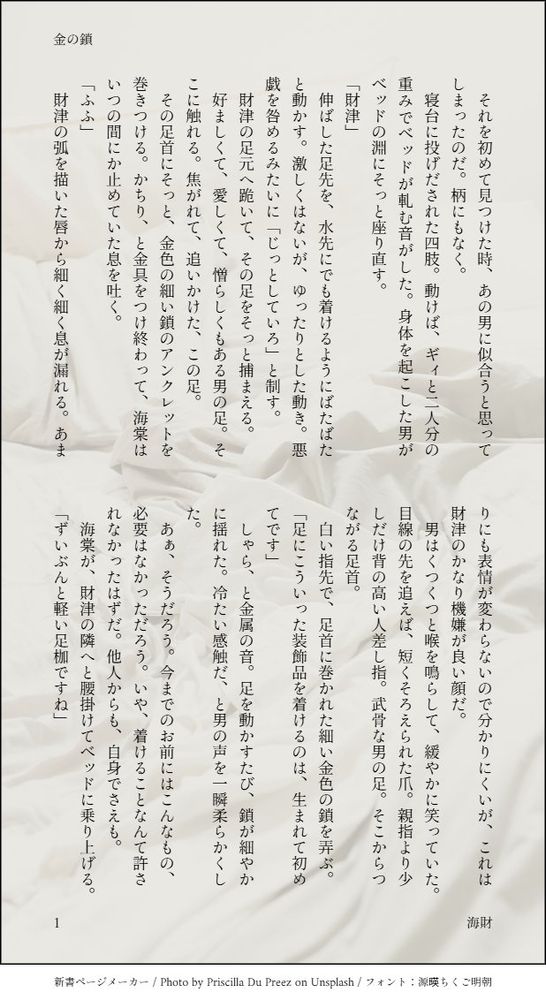 金の鎖
それを初めて見つけた時、あの男に似合うと思って
しまったのだ。柄にもなく。
寝台に投げだされた四肢。動けば、ギィと二人分の
重みでベッドが軋む音がした。身体を起こした男が
ベッドの淵にそっと座り直す。
「財津」
伸ばした足先を、水先にでも着けるようにばたばた
と動かす。激しくはないが、ゆったりとした動き。悪
戯を咎めるみたいに「じっとしていろ」と制す。
財津の足元へ跪いて、その足をそっと捕まえる。
好ましくて、愛しくて、憎らしくもある男の足。そ
こに触れる。焦がれて、追いかけた、この足。
その足首にそっと、金色の細い鎖のアンクレットを
巻きつける。かちり、と金具をつけ終わって、海棠は
いつの間にか止めていた息を吐く。
「ふふ」
財津の弧を描いた唇から細く細く息が漏れる。あま
りにも表情が変わらないので分かりにくいが、これは
財津のかなり機嫌が良い顔だ。
男はくつくつと喉を鳴らして、緩やかに笑っていた。
目線の先を追えば、短くそろえられた爪。親指より少
しだけ背の高い人差し指。武骨な男の足。そこからつ
ながる足首。
白い指先で、足首に巻かれた細い金色の鎖を弄ぶ。
「足にこういった装飾品を着けるのは、生まれて初め
てです」
しゃら、と金属の音。足を動かすたび、鎖が細やか
に揺れた。冷たい感触だ、と男の声を一瞬柔らかくし
た。
あぁ、そうだろう。今までのお前にはこんなもの、
必要はなかっただろう。いや、着けることなんて許さ
れなかったはずだ。他人からも、自身でさえも。
海棠が、財津の隣へと腰掛けてベッドに乗り上げる。
「ずいぶんと軽い足枷ですね」
1
海財
新書ページメーカー / Photo by Priscilla Du Preez on Unsplash / フォント：源暎ちくご明朝